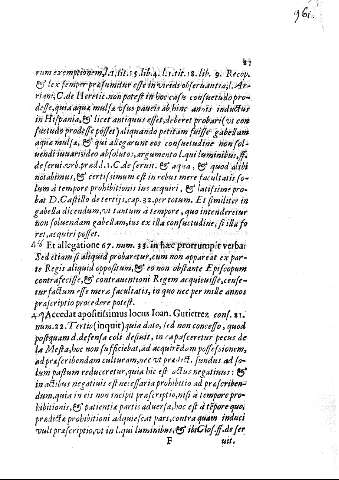 961.
87
rum exemptionem, l.1, tit.15. lib.4. l.1. tit.18. lib. 9. Recop.
& lex semper præsumitur esse in viridi observantia, l. Ar-
riani, C. de Heretic. non potest in hoc casu consuetudo pro-
desse, quia aquæ mulsæ usus paucis ab hinc annis inductus
in Hispania, & licet antiquus esset, deberet probari (ut con
suetudo prodesse posset) aliquando petitam fuisse gabellam
aquæ mulsæ, & qui allegarent eos consuetudine non sol-
vendi iuvari, video absoluto, argumento l. qui luminibus, ff.
de servi. urb. præd. l. 1. C. de servit. & aqua, & quod alibi
notabimus, & certissimum est in rebus meræ facultatis so-
lum à tempore prohibitionis ius acquiri, & latissime pro-
bat D. Castillo de tertijs, cap. 32. per totum. Et similiter in
gabella dicendum, ut tantum à tempore, quo intenderetur
non solvendam gabellam, ius ex illa consuetudine, si illa fo
ret, acquiri posset.
46 Et allegatione 67. num. 35. in hæc prorrumpit verba:
Sed etiam si aliquid probaretur, cum non appareat ex par-
te Regis aliquid oppositum, & eo non obstante Episcopum
contrafecisse, & contravenienti Regem acquievisse, cense-
tur factum esse meræ facultatis, in quo nec per mille annos
præscriptio procedere potest.
47 Accedat apositissimus locus Ioan. Gutierrez, cons. 21.
num. 22. Tertio (inquit) quia dato, sed non concesso, quod
postquam d. defensa colit desinit, in ea pasceretur pecus de
la Mesta, hoc non sufficiebat, ad acquirendam possessionem,
ad præscribendam culturam, nec ut prædict. fundus ad so-
lum pastum reduceretur, quia hic est actus negatiuus: &
in actibus negatiuis est necessaria prohibitio ad præscriben-
dum, quia in eis non incipit præscriptio, nisi à tempore pro-
hibitionis, & patientiæ partis adversæ, hoc est à tempore quo,
prædictæ prohibitioni adquiescat pars, contra quam induci
vult præscriptio, ut in l. qui luminibus, & ibi Glos. ff. de ser
F
uit.